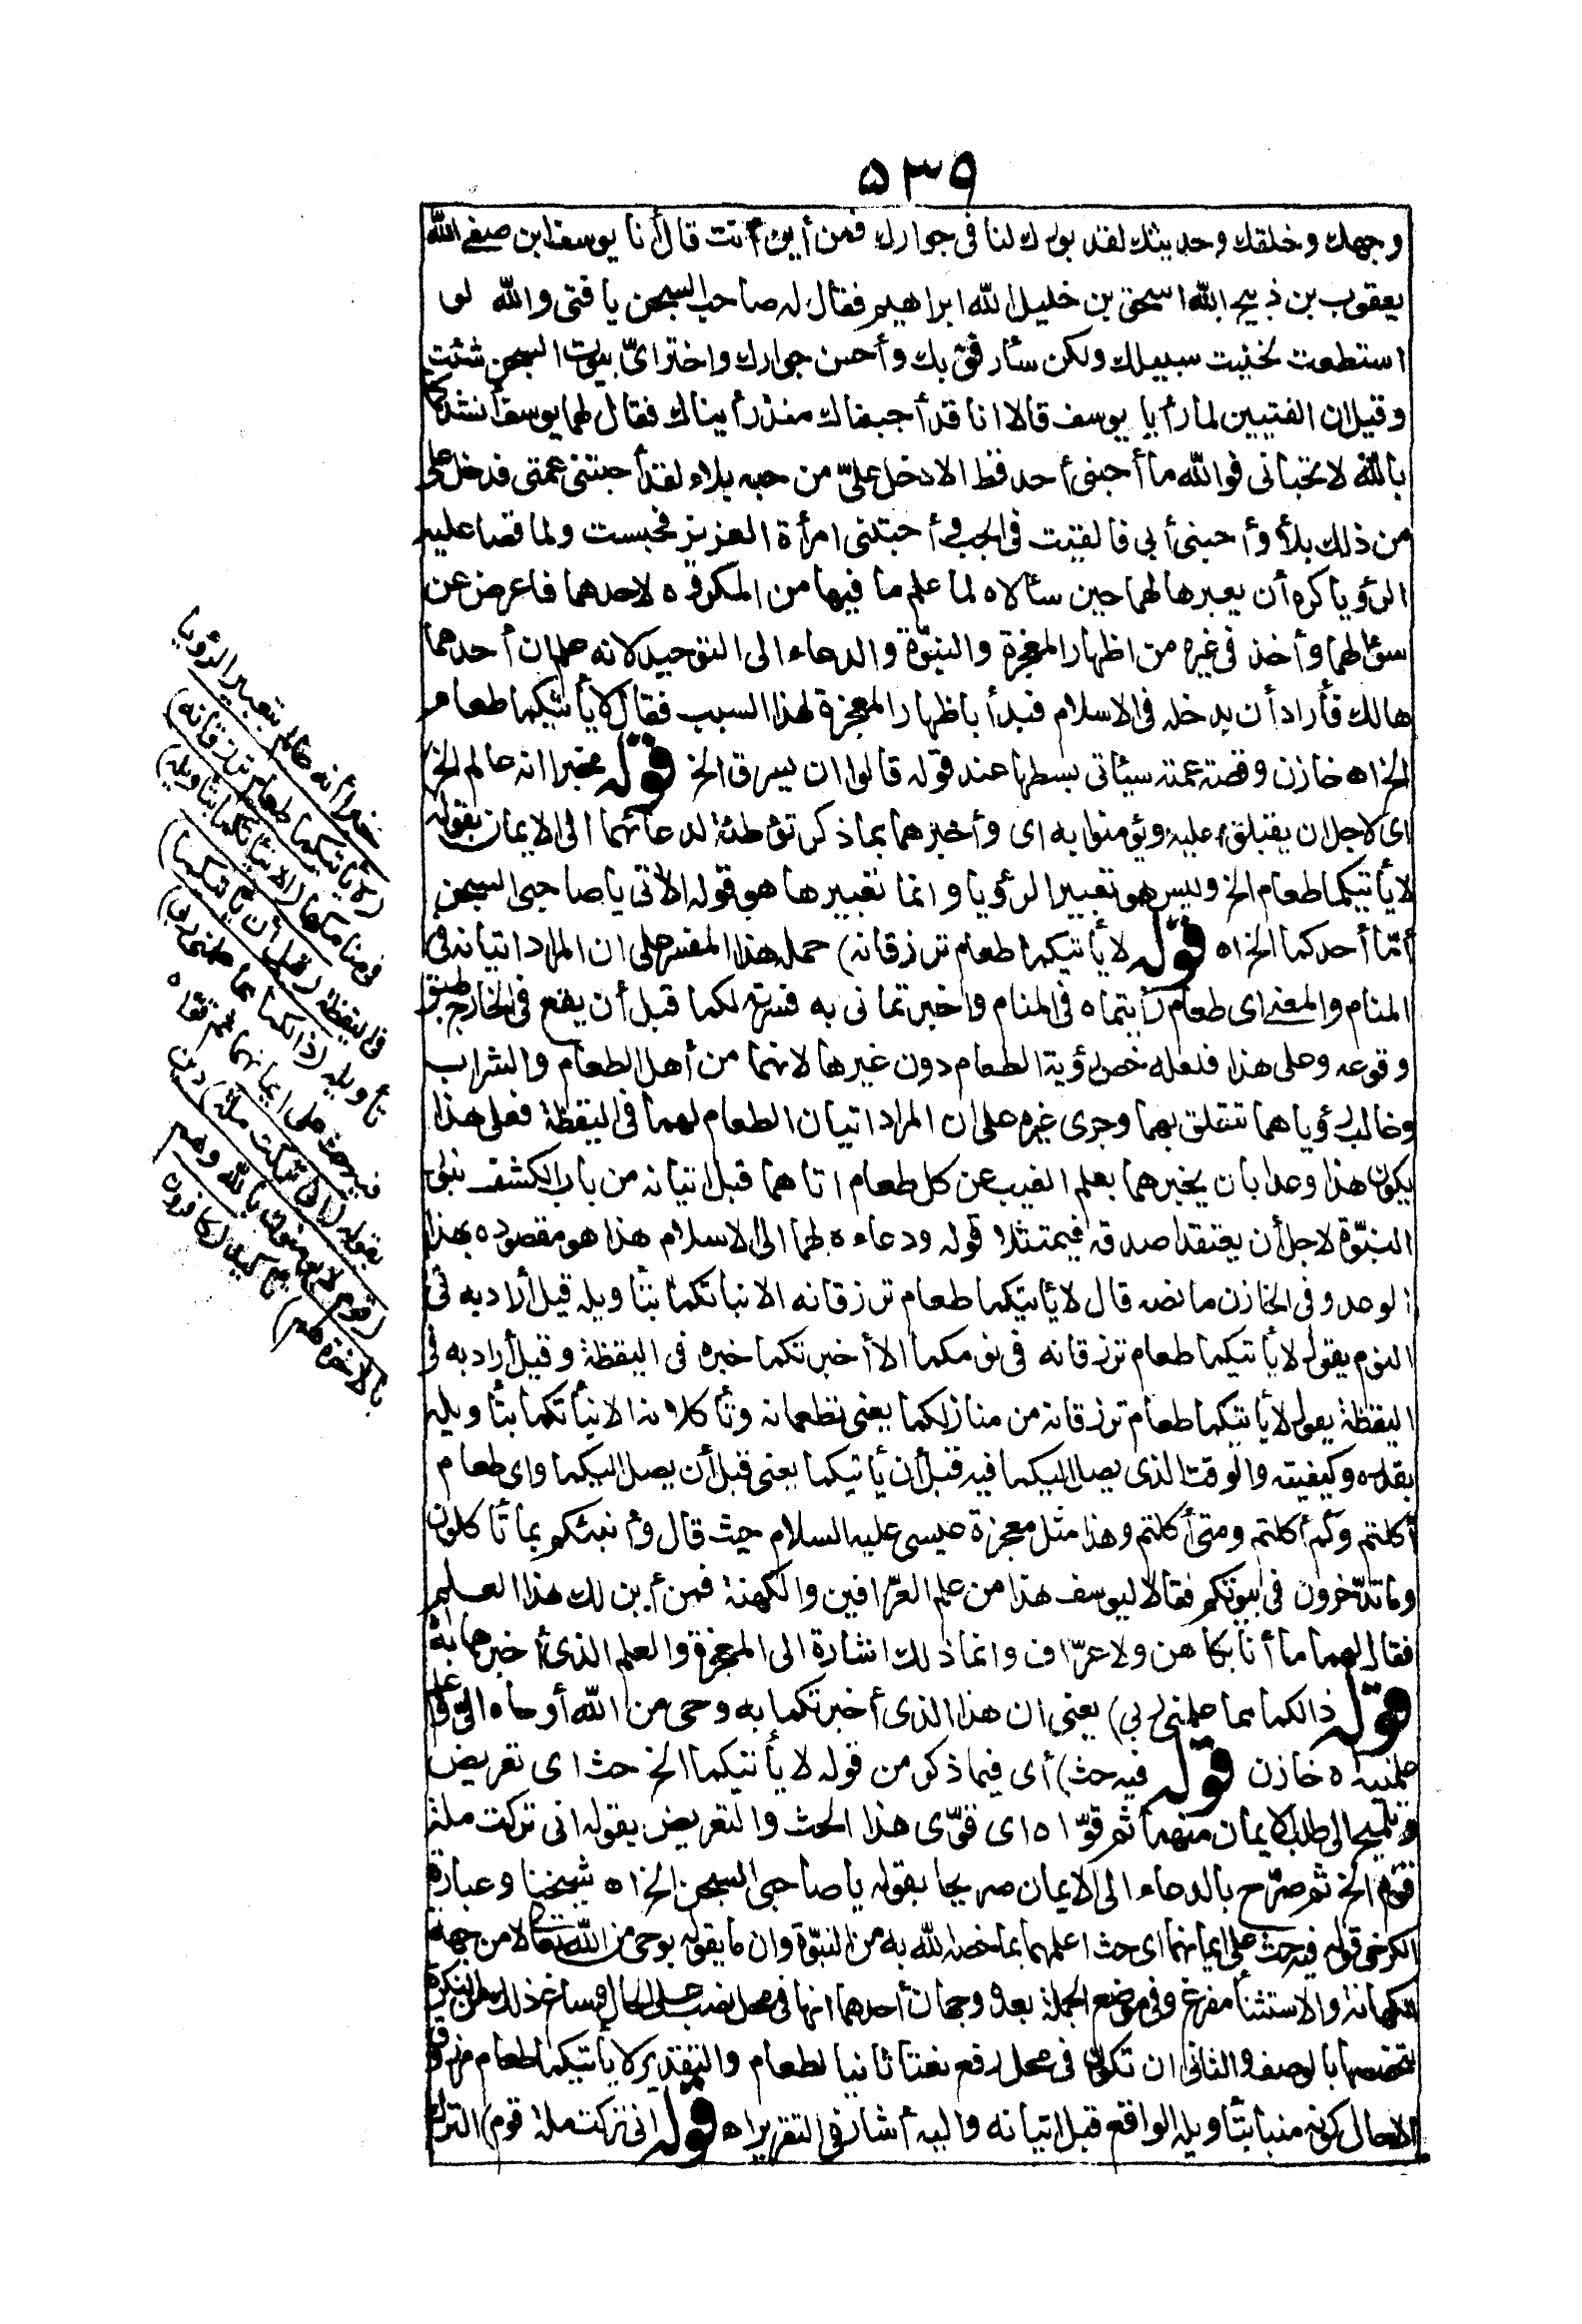 ٥٣٩
وجهك وخلقك وحديثك لقد بورك لنا فى جوارك فمن أين أنت قال أنا يوسف ابن صفى الله
يعقوب بن ذبيح الله اسحق بن خليل الله ابراهيم فقال له صاحب السجن يا فتى والله لو
استطعت لخليت سبيلك ولكن سأرفق بك وأحسن جوارك واختر اىّ بيوت السجن شئت
وقيل ان الفتيين لما رأيا يوسف قالا انا قد أحببناك منذ رأيناك فقال لهما يوسف أنشدكما
بالله لا تحبانى فوالله ما أحبنى أحد قط الا دخل علىّ من حبه بلاء لقد أحبتنى عمتى فدخل على
من ذلك بلاء وأحبنى أبى فالقيت فى الجب وأحبتنى امرأة العزيز فحبست ولما قصا عليه
الرؤيا كره أن يعبرها لهما حين سألاه لما علم ما فيها من المكروه لاحدهما فاعرض عن
سؤالهما وأخذ فى غيره من اظهار المعجزة والنبوّة والدعاء الى التوحيد لانه علم ان أحدهما
هالك فأراد أن يدخله فى الاسلام فبدأ باظهار المعجزة لهذا السبب فقال لا يأتيكما طعام
الخ اه خازن وقصة عمته سيأتى بسطها عند قوله قالوا ان يسرق الخ قوله مخبرا انه عالم الخ
اى لاجل ان يقبلوا عليه ويؤمنوا به اى وأخبرهما بما ذكر توطئة لدعائهما الى الايمان بقوله
لا يأتيكما طعام الخ وليس هو تعبير الرؤيا وانما تعبيرها هو قوله الآتى يا صاحبى السجن
أمّا أحدكما الخ اه قوله لا يأتيكما طعام ترزقانه) حمله هذا المفسر على ان المراد اتيانه فى
المنام والمعنى اى طعام رأيتماه فى المنام واخبرتمانى به فسرته لكما قبل أن يقع فى الخارج طبق
وقوعه وعلى هذا فلعله خص رؤية الطعام دون غيرها لانهما من أهل الطعام والشراب
وغالب رؤياهما تتعلق بهما وجرى غيره على ان المراد اتيان الطعام لهما فى اليقظة فعلى هذا
يكون هذا وعدا بان يخبرهما بعلم الغيب عن كل طعام اتاهما قبل اتيانه من باب الكشف بنور
النبوّة لاجل أن يعتقدا صدقه فيمتثلا قوله ودعاءه لهما الى الاسلام هذا هو مقصوده بهذا
الوعد وفى الخازن ما نصه قال لا يأتيكما طعام ترزقانه الا نبأتكما بتأويله قيل أراد به فى
النوم يقول لا يأتيكما طعام ترزقانه فى نومكما الا أخبرتكما خبره فى اليقظة وقيل أراد به فى
اليقظة يقول لا يأتيكما طعام ترزقانه من منازلكما يعنى تطعمانه وتأكلانه الا نبأتكما بتأويله
بقدره وكيفيته والوقت الذى يصل اليكما فيه قبل أن يأتيكما يعنى قبل أن يصل اليكما واى طعام
أكلتم وكم أكلتم ومتى أكلتم وهذا مثل معجزة عيسى عليه السلام حيث قال وأنبئكم بما تأكلون
وما تدّخرون فى بيوتكم فقالا ليوسف هذا من علم العرّافين والكهنة فمن أين لك هذا العلم
فقال لهما ما أنا بكاهن ولا عرّاف وانما ذلك اشارة الى المعجزة والعلم الذى أخبرهما به
قوله ذالكما مما علمنى ربى) يعنى ان هذا الذى أخبرتكما به وحى من الله أوحاه الىّ وعلم
علمنيه اه خازن قوله فيه حث) أى فيما ذكر من قوله لا يأتيكما الخ حث اى تعريض
وتلميح الى طلب الايمان منهما ثم قوّاه اى قوّى هذا الحث والتعريض بقوله انى تركت ملة
قوم الخ ثم صرّح بالدعاء الى الايمان صريحا بقوله يا صاحبى السجن الخ اه شيخنا وعبارة
الكرخى قوله فيه حث على ايمانهما اى حث اعلمهما بما خصه الله به من النبوّة وان ما يقوله بوحى من الله تعالى لا من جهة
الكهانة والاستثناء مفرغ وفى موضع الجملة بعده وجهان أحدهما انها فى محل نصب على الحال وساغ ذلك من النكرة
لتخصصها بالوصف والثانى ان تكون فى محل رفع نعتا ثانيا لطعام والتقدير لا يأتيكما طعام مرزوق
الا حال كونه منبأ بتأويله الواقع قبل اتيانه واليه أشار فى التقرير اه قوله انى تركت ملة قوم) الترك
مخبرا أنه عالم بتعبير الرؤيا
(لا يأتيكما طعام ترزقانه)
فى منامكما (الا نبأتكما بتأويله)
فى اليقظة (قبل أن يأتيكما)
تأويله (ذالكما مما علمنى ربى)
فيه حث على ايمانهما ثم قوّاه
بقوله (انى تركت ملة) دين
(قوم لا يؤمنون بالله وهم
بالآخرة هم) تأكيد (كافرون